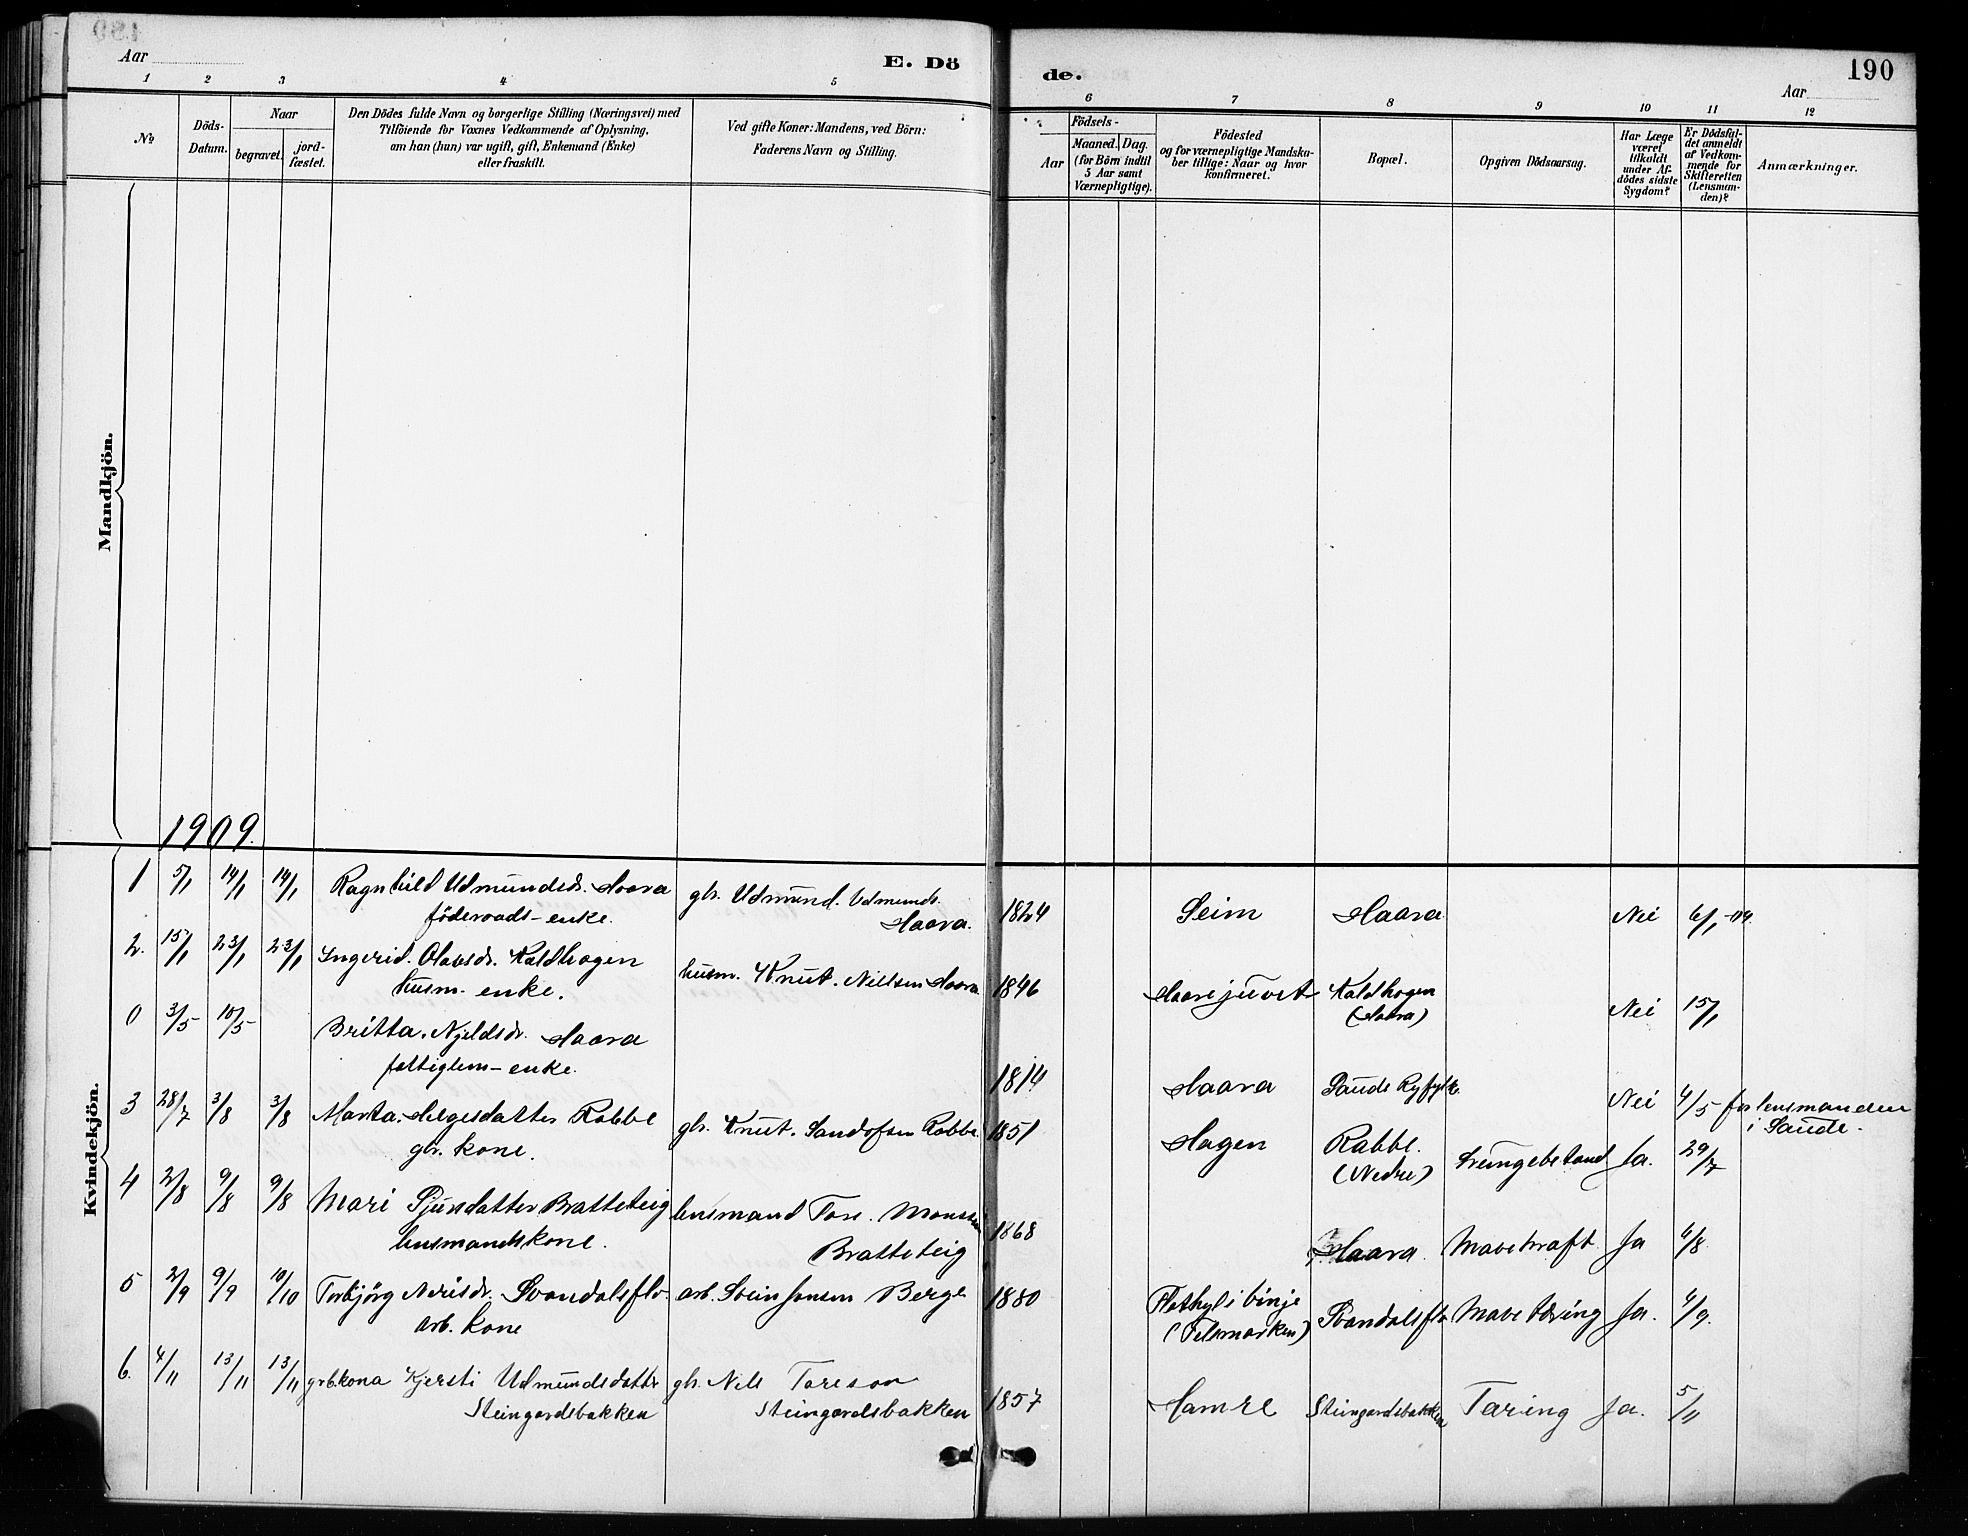 Aar
E. Dö
de.
190
Aar
1 2 3 4 5 6 7 8 9 10 11 12
No.
Döds-
Datum.
Naar
begravet.
jord-
fæstet.
Den Dödes fulde Navn og borgerlige Stilling (Næringsvei) med
Tilföiende for Voxnes Vedkommende af Oplysning,
om han (hun) var ugift, gift, Enkemand (Enke)
eller fraskilt.
Ved gifte Koner: Mandens, ved Börn:
Faderens Navn og Stilling.
Födsels-
Aar
Maaned.
Dag.
(for Börn indtil
5 Aar samt
Værnepligtige).
Födested
og for værnepligtige Mandska-
ber tillige: Naar og hvor
konfirmeret.
Bopæl.
Opgiven Dödsaarsag.
Har Læge
været
tilkaldt
under Af-
dödes sidste
Sygdom?
Er Dödsfal-
det anmeldt
af Vedkom-
mende for
Skifteretten
(Lensman-
den)?
Anmærkninger.
Mandkjön.
1909.
Kvindekjön.
1 5/1 14/1 14/1 Ragnhild Udmundsdr. Haara gbr. Udmund. Udmunds. 1824 Seim Haara Nei 6/1-09.
föderaads-enke. Haara.
2. 15/1 23/1 23/1 Ingerid. Olavsdr. Kaldhagen husm. Knut. Nielsen Haara 1846 Haarejuvet Kaldhagen Nei 15/1
husm. enke. (Haara)
0 3/5 10/5 Britta. Njeldsdr. Haara 1814 Haara Saude Ryfylke Nei 4/5 for lensmanden
fattiglem-enke. i Saude.
3 28/7 3/8 3/8 Marta. Helgesdatter Rabbe gbr. Knut. Sandofsen Rabbe 1851 Hagen Rabbe. Lungebetænd Ja. 29/7
gbr. kone. (Nedre)
4 2/8 9/8 9/8 Mari Sjursdatter Bratteteig lensmand Tore. Monsen 1868 Haara Mavekraft Ja 4/8
lensmandskone. Bratteteig
5 2/9 9/9 10/10 Torbjörg Nerisdr. Svandalsflo. arb. Svein Jonsen Berge 1880 Flathyl i Vinje Svandalsflo Mavetæring Ja. 4/9.
arb. kone (Telemarken)
6. 4/11 13/11 13/11 grb.kona Kjersti Udmundsdatter gbr. Nils Toreson 1857 Hamre Steingardsbakken Tæring Ja. 5/11
Steingardsbakken Steingardsbakken